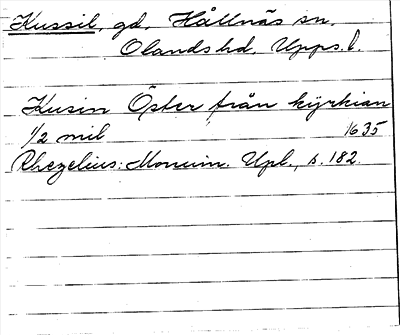 Kussil, gd, Hållnäs sn.
Olands hd, Upps. l.
Kusin Öster från kyrkian
1/2 mil 1635
Rhezelius: Monum. Upl., s. 182